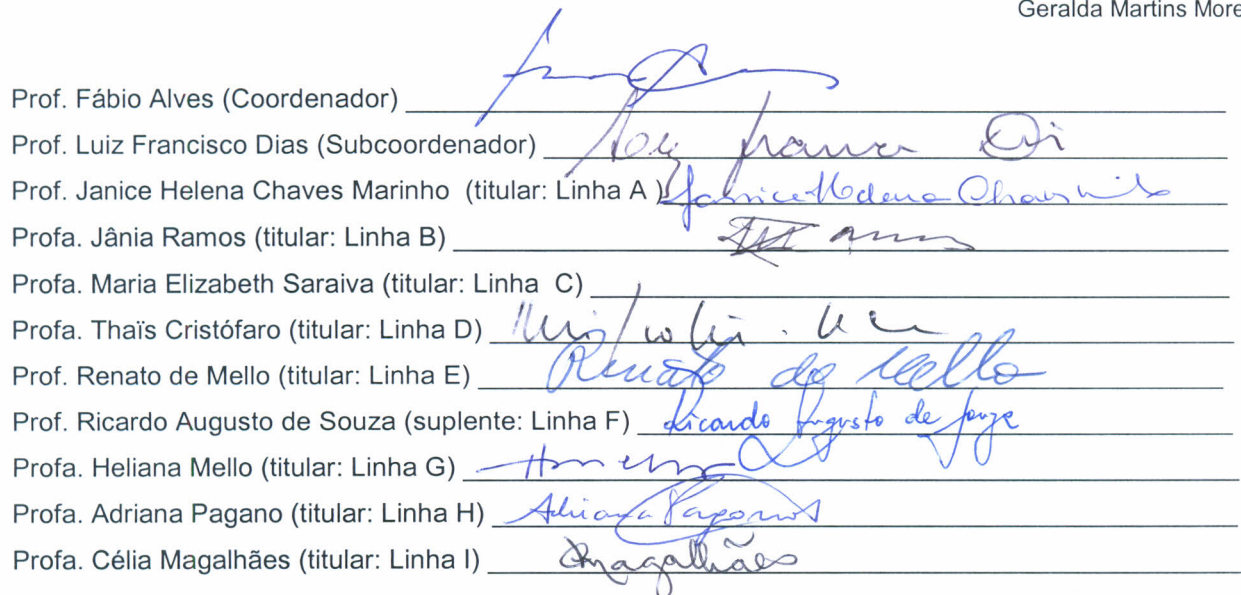 Geralda Martins More
Prof. Fábio Alves (Coordenador)
Prof. Luiz Francisco Dias (Subcoordenador)
Prof. Janice Helena Chaves Marinho (titular: Linha A ) Janice Helena Chaves
Profa. Jânia Ramos (titular: Linha B)
Profa. Maria Elizabeth Saraiva (titular: Linha C)
Profa. Thaïs Cristófaro (titular: Linha D)
Prof. Renato de Mello (titular: Linha E) Renato de Mello
Prof. Ricardo Augusto de Souza (suplente: Linha F) Ricardo Augusto de Souza
Profa. Heliana Mello (titular: Linha G)
Profa. Adriana Pagano (titular: Linha H) Adriana Pagano
Profa. Célia Magalhães (titular: Linha I) Magalhães